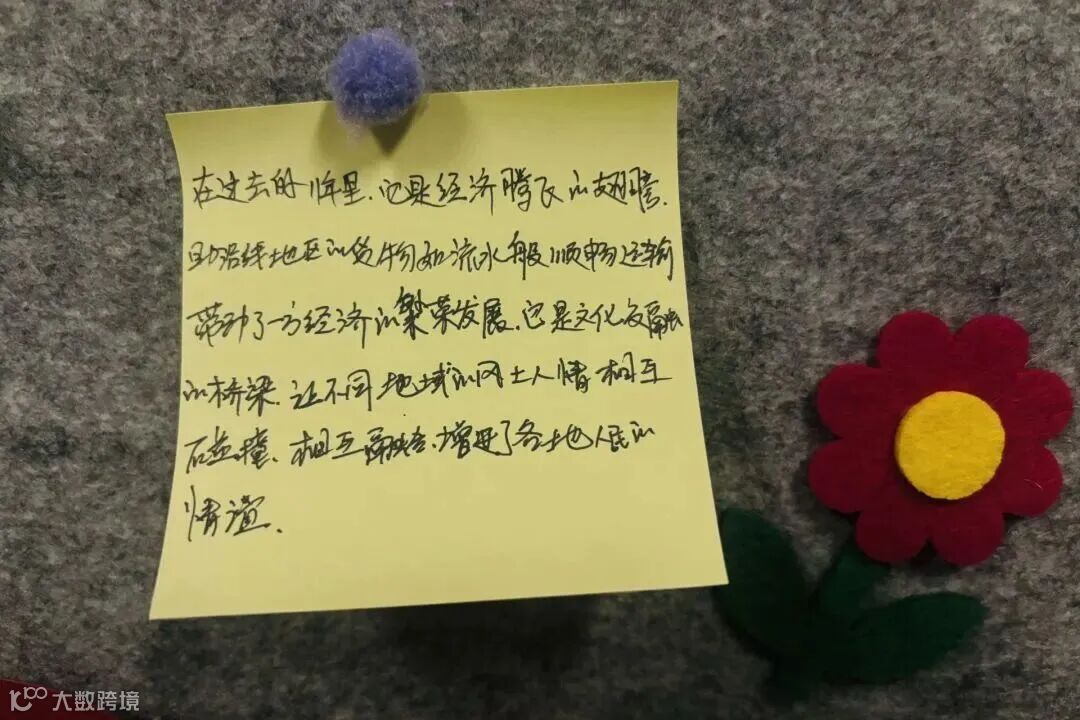 在过去的1年里,它是经济腾飞的翅膀,
助沿线地区的货物如流水般顺畅运输
带动了一方经济的繁荣发展,它是文化交融
的桥梁,让不同地域的风土人情相互
碰撞、相互融合,增进了各地人民的
情谊.
大数跨境